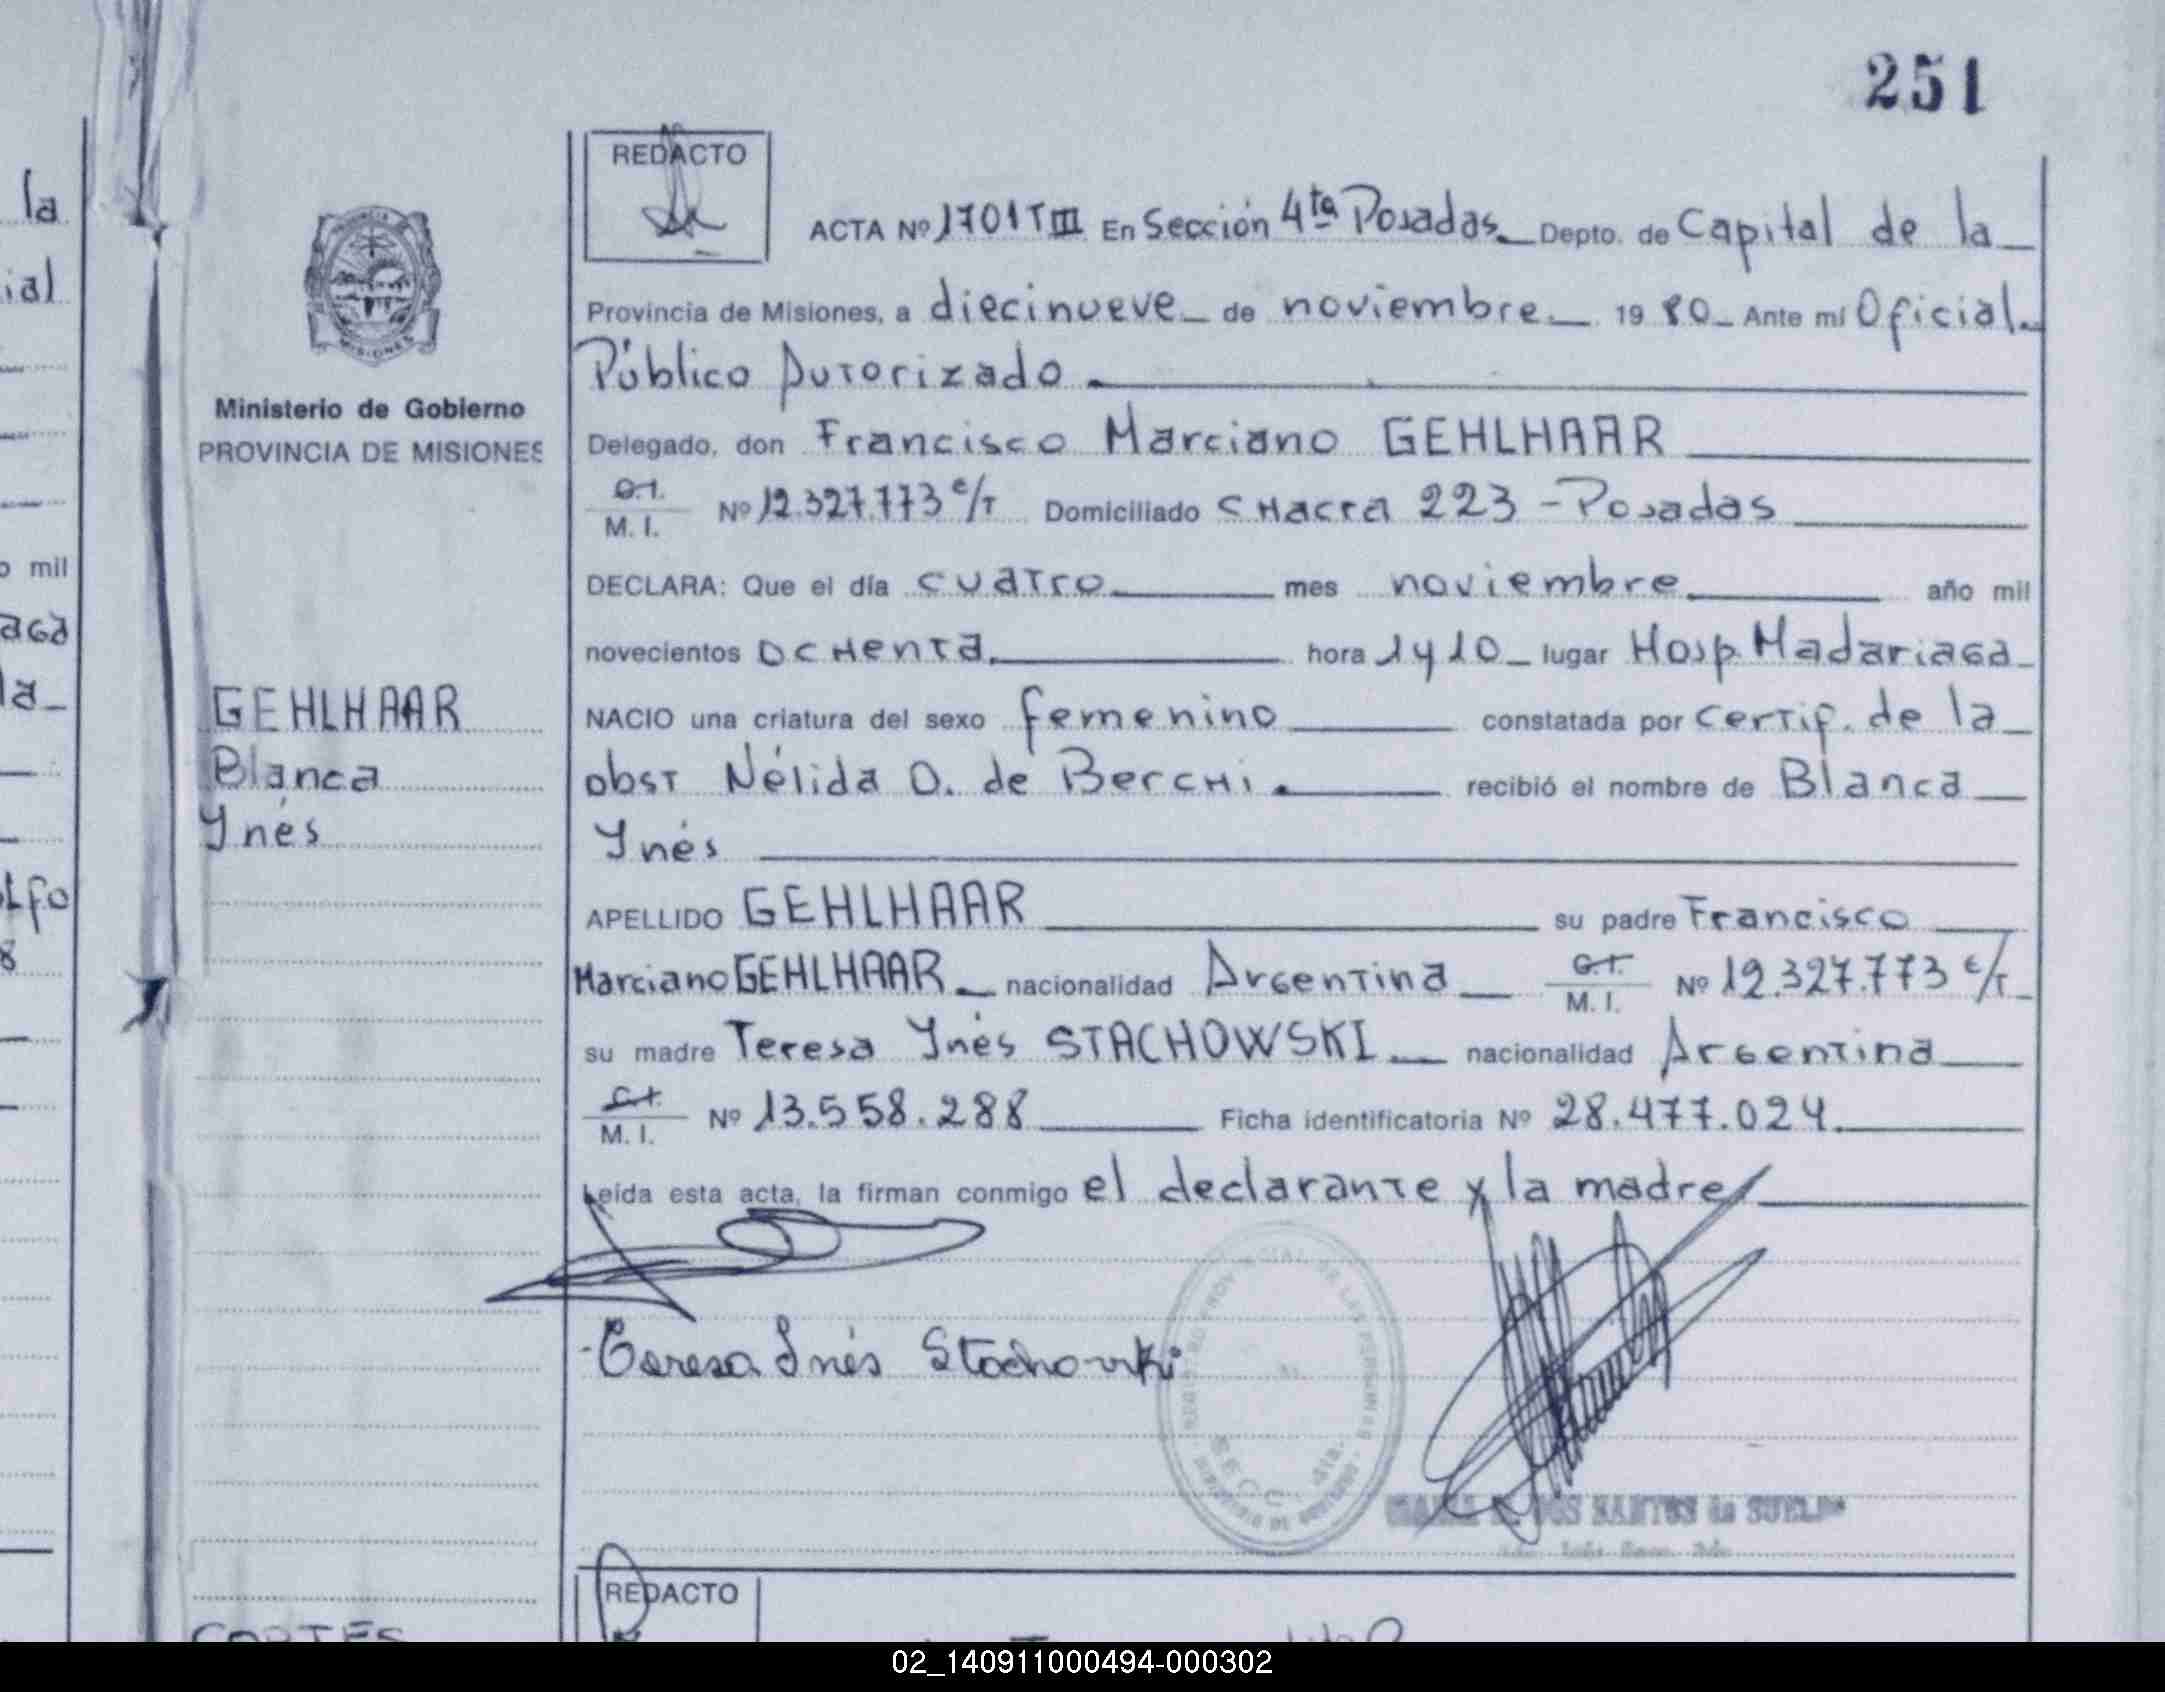 251
la
REDACTO
ACTA Nº 1701 T III En Sección 4ta Posadas Depto. de Capital de la
ial
Provincia de Misiones, a diecinueve de noviembre 19 80 Ante mí Oficial
Público Autorizado
Ministerio de Gobierno
PROVINCIA DE MISIONES
Delegado, don Francisco Marciano GEHLHAAR
C.I.
M. I. Nº 12.327.773 c/T Domiciliado CHacra 223 - Posadas
o mil
DECLARA: Que el día cuatro mes noviembre año mil
aga
novecientos ocHenta hora 1 y 10 lugar Hosp. Madariaga
la
GEHLHAAR
NACIO una criatura del sexo femenino constatada por certif. de la
Blanca
obst Nélida O. de BercHi recibió el nombre de Blanca
Ynés
Ynés
Lfo
APELLIDO GEHLHAAR su padre Francisco
8
Marciano GEHLHAAR nacionalidad Argentina C.I. M. I. Nº 12.327.773 c/T
su madre Teresa Ynés STACHOWSKI nacionalidad Argentina
C.I.
M. I. Nº 13.558.288 Ficha identificatoria Nº 28.477.024
Leída esta acta, la firman conmigo el declarante y la madre
Teresa Inés Stachowski
DOS SANTOS de SUELDO
REDACTO
CORTES
02_140911000494-000302